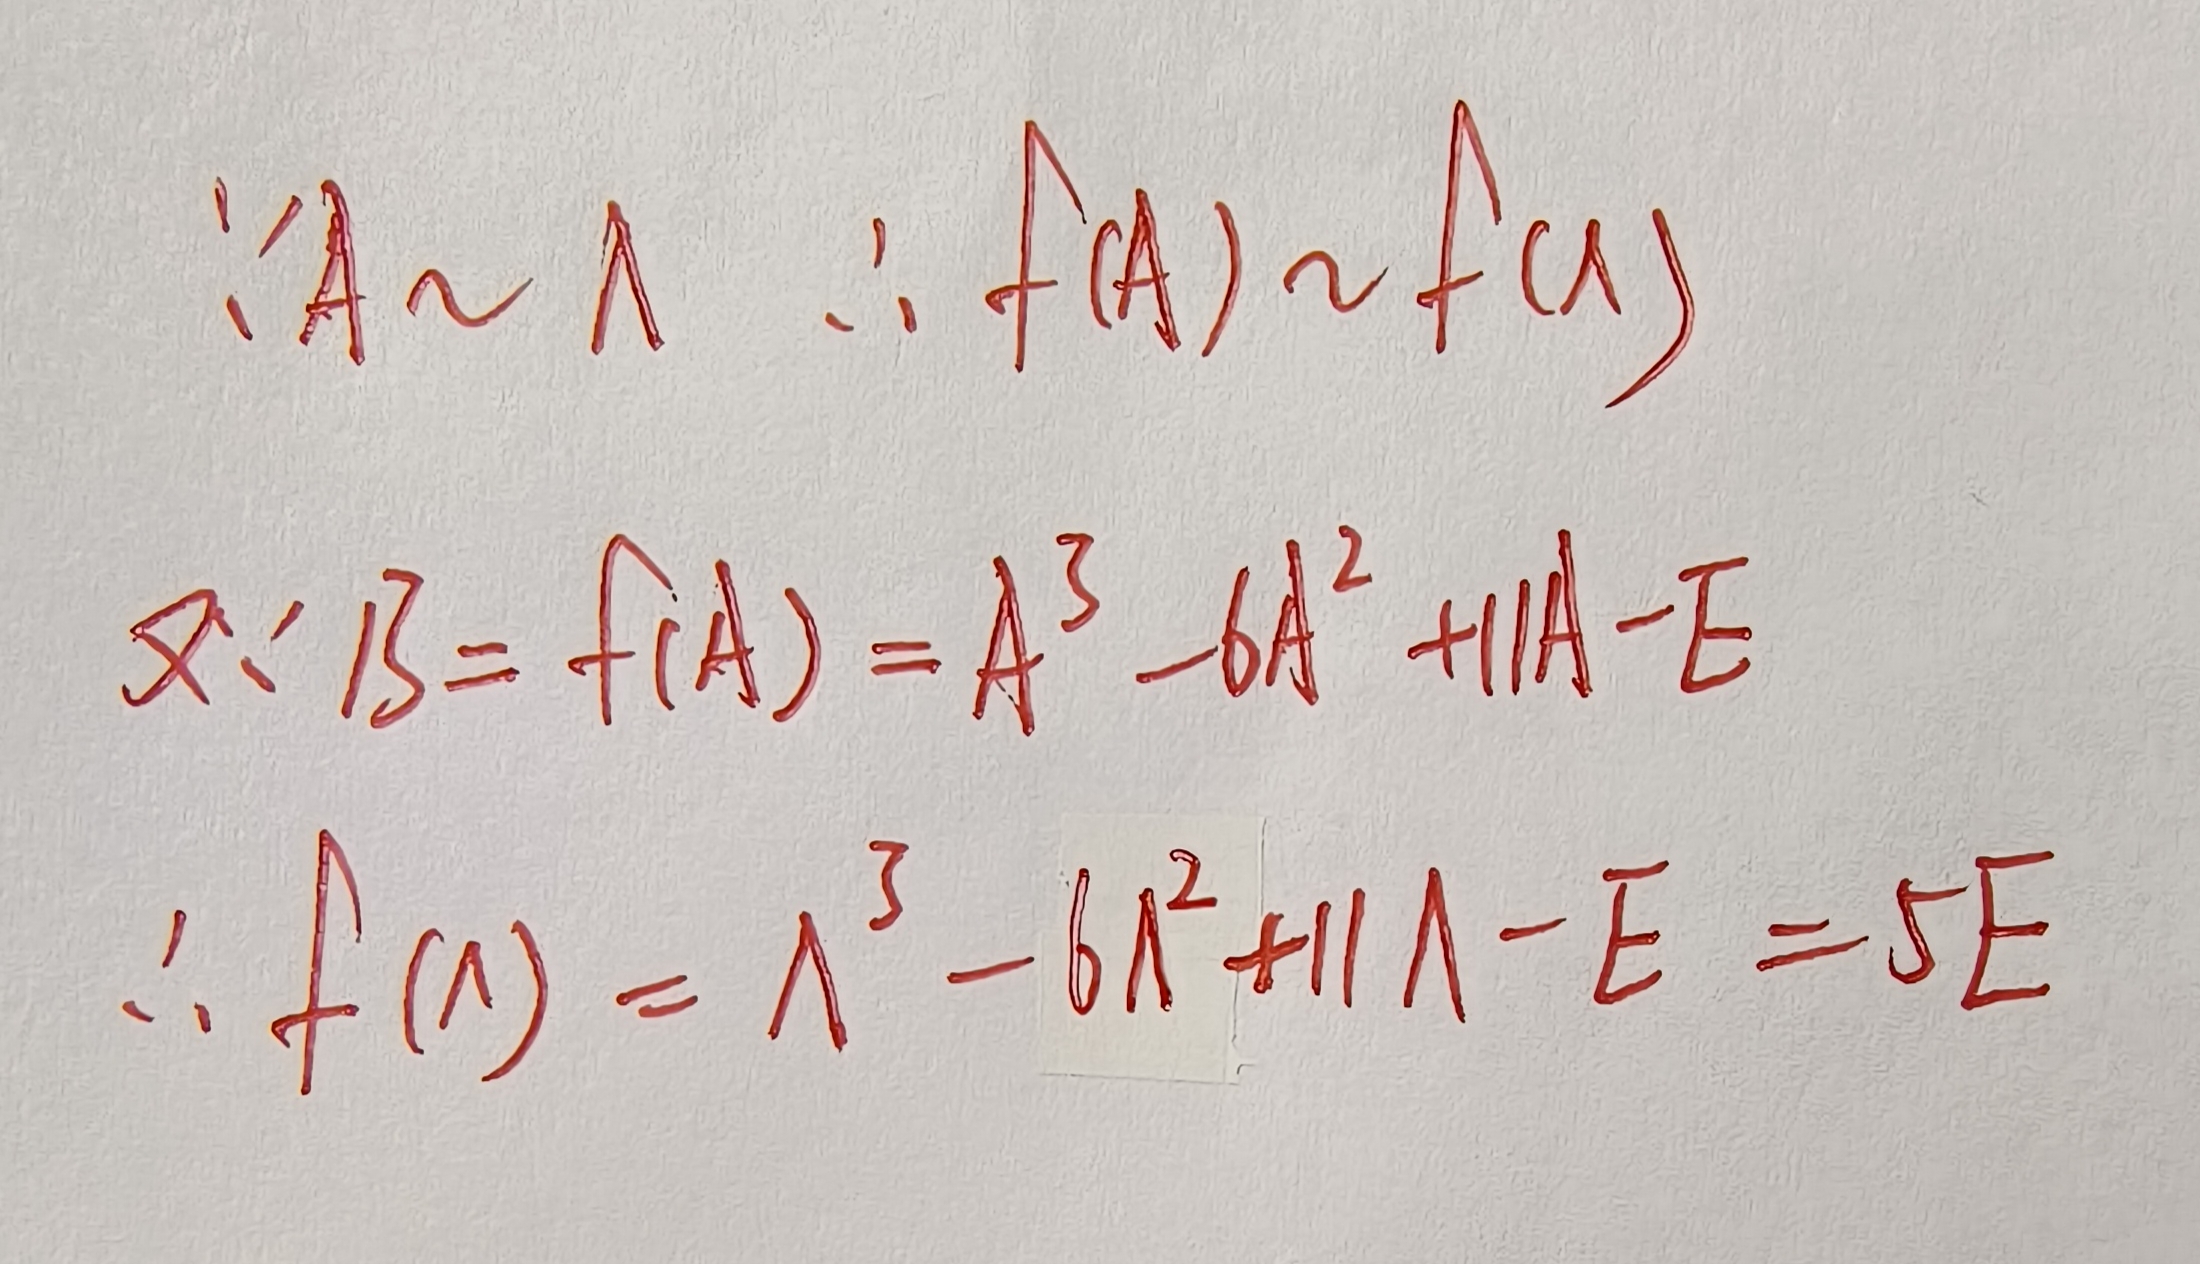 ∵A~Λ ∴f(A)~f(Λ)
又∵B=f(A)=A³-6A²+11A-E
∴f(Λ)=Λ³-6Λ²+11Λ-E=5E